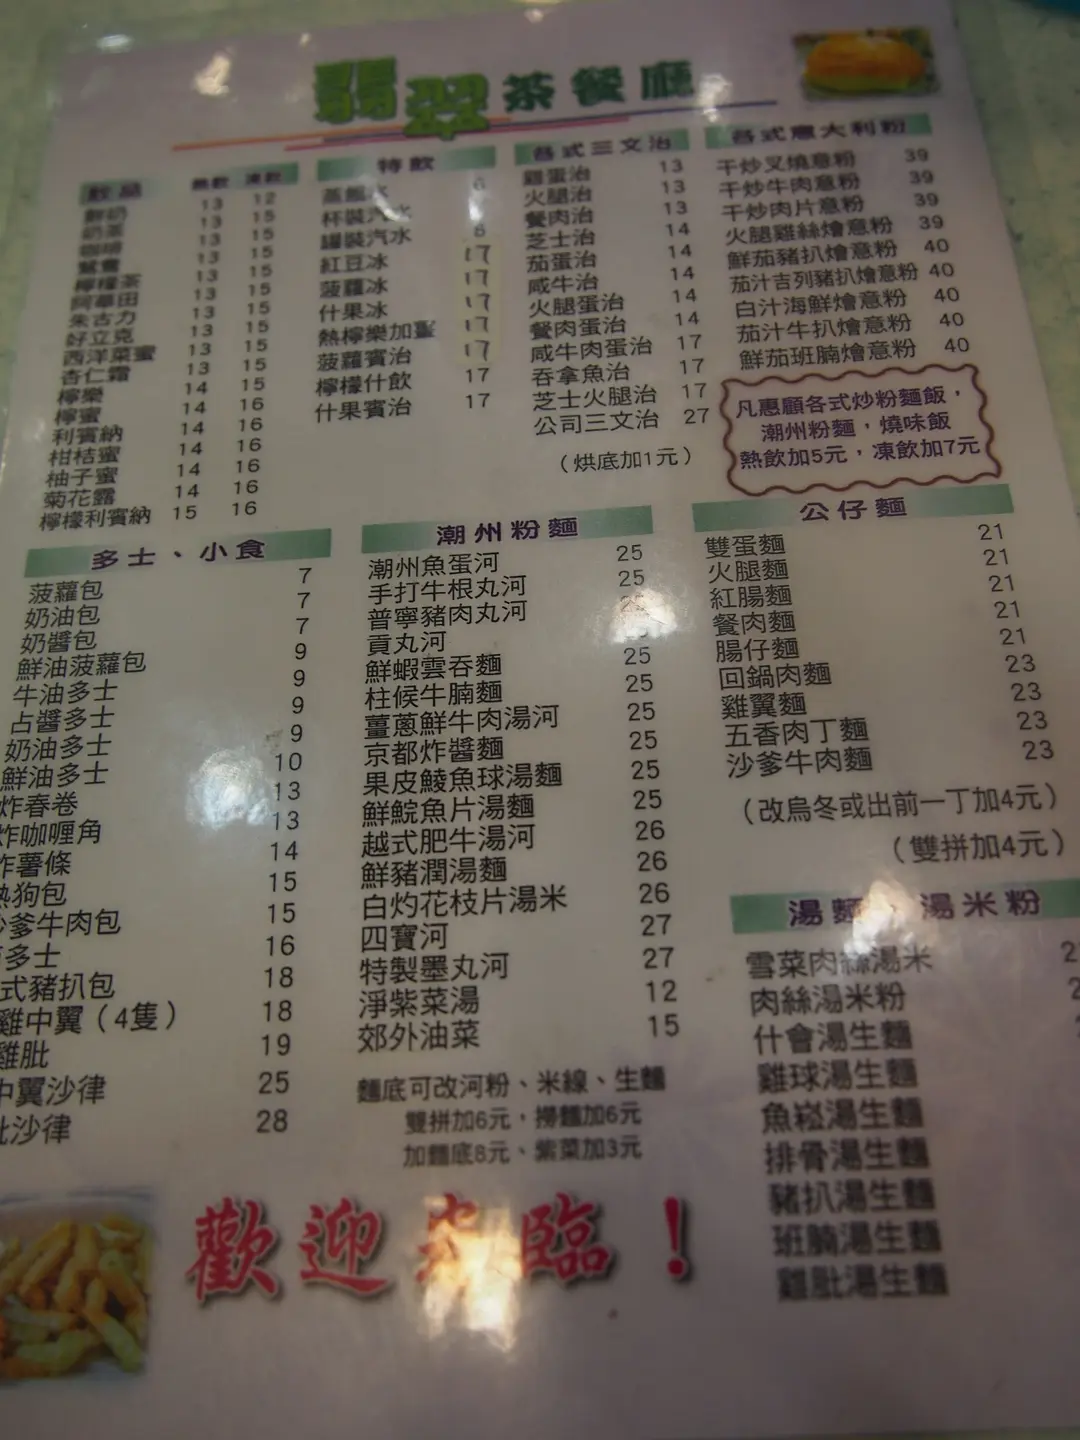 翡翠茶餐廳
飲品 熱飲 凍飲
鮮奶 13 12
奶茶 13 15
咖啡 13 15
鴛鴦 13 15
檸檬茶 13 15
阿華田 13 15
朱古力 13 15
好立克 13 15
西洋菜蜜 13 15
杏仁霜 14 15
檸樂 14 16
檸蜜 14 16
利賓納 14 16
柑桔蜜 14 16
柚子蜜 14 16
菊花露
檸檬利賓納 15 16
特飲
蒸餾水 6
杯裝汽水
罐裝汽水 6
紅豆冰 17
菠蘿冰 17
什果冰 17
熱檸樂加薑 17
菠蘿賓治 17
檸檬什飲 17
什果賓治 17
各式三文治
雞蛋治 13
火腿治 13
餐肉治 13
芝士治 14
茄蛋治 14
咸牛治 14
火腿蛋治 14
餐肉蛋治 14
咸牛肉蛋治 17
吞拿魚治 17
芝士火腿治 17
公司三文治 27
（烘底加1元）
各式意大利粉
干炒叉燒意粉 39
干炒牛肉意粉 39
干炒肉片意粉 39
火腿雞絲燴意粉 39
鮮茄豬扒燴意粉 40
茄汁吉列豬扒燴意粉 40
白汁海鮮燴意粉 40
茄汁牛扒燴意粉 40
鮮茄班腩燴意粉 40
凡惠顧各式炒粉麵飯，
潮州粉麵，燒味飯
熱飲加5元，凍飲加7元
多士、小食
菠蘿包 7
奶油包 7
奶醬包 7
鮮油菠蘿包 9
牛油多士 9
占醬多士 9
奶油多士 9
鮮油多士 10
炸春卷 13
炸咖喱角 13
炸薯條 14
熱狗包 15
沙爹牛肉包 15
多士 16
式豬扒包 18
雞中翼（4隻） 18
雞肶 19
中翼沙律 25
肶沙律 28
潮州粉麵
潮州魚蛋河 25
手打牛根丸河 25
普寧豬肉丸河
貢丸河
鮮蝦雲吞麵 25
柱候牛腩麵 25
薑蔥鮮牛肉湯河 25
京都炸醬麵 25
果皮鯪魚球湯麵 25
鮮鯇魚片湯麵 25
越式肥牛湯河 26
鮮豬潤湯麵 26
白灼花枝片湯米 26
四寶河 27
特製墨丸河 27
淨紫菜湯 12
郊外油菜 15
麵底可改河粉、米線、生麵
雙拼加6元，撈麵加6元
加麵底8元、紫菜加3元
公仔麵
雙蛋麵 21
火腿麵 21
紅腸麵 21
餐肉麵 21
腸仔麵 21
回鍋肉麵 23
雞翼麵 23
五香肉丁麵 23
沙爹牛肉麵 23
（改烏冬或出前一丁加4元）
（雙拼加4元）
湯麵、湯米粉
雪菜肉絲湯米
肉絲湯米粉
什會湯生麵
雞球湯生麵
魚崧湯生麵
排骨湯生麵
豬扒湯生麵
班腩湯生麵
雞肶湯生麵
歡迎光臨！